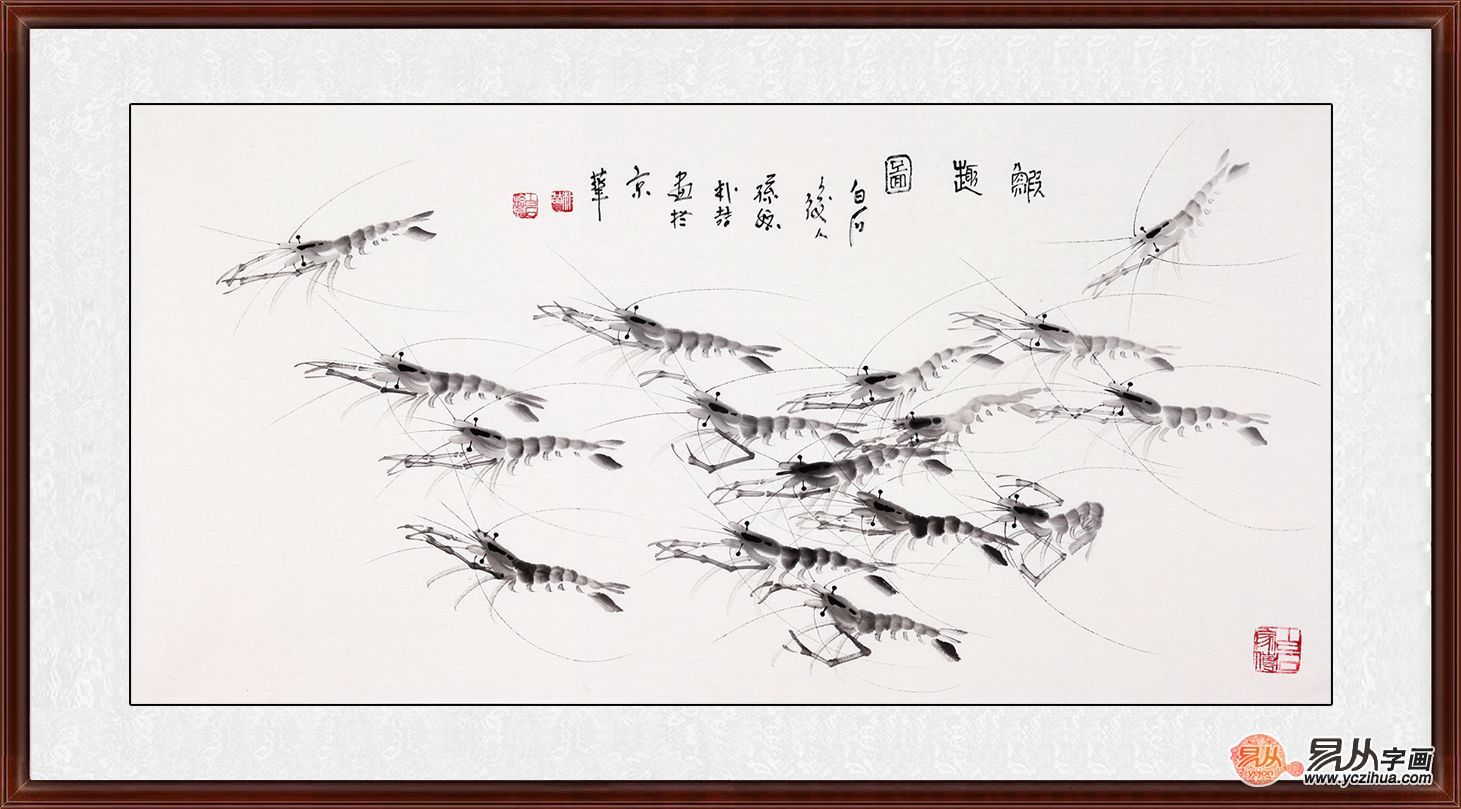 鰕趣圖
白石
後人
孫媳
朴喆
畫於
京
華
易从
易从字画
www.yczihua.com